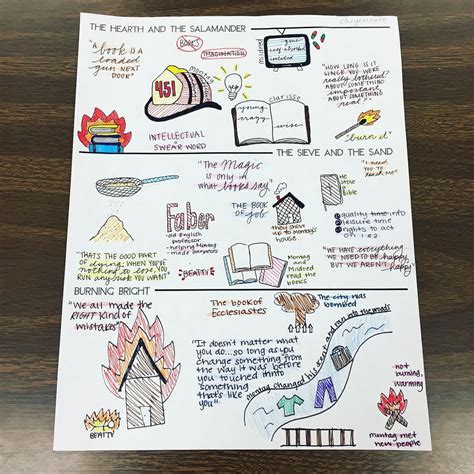 THE HEARTH AND THE SALAMANDER
"A
book IS A
loaded
gun NEXT
DOOR"
BOOKS
IMAGINATION
montag
451
mildred
gone
self-absorbed
isolated
"HOW LONG IS IT
SINCE YOU WERE
really bothered?
ABOUT SOMETHING
important,
ABOUT SOMETHING
real?"
clarisse
young
crazy
wise
INTELLECTUAL
SWEAR WORD
"burn it"
THE SIEVE AND THE SAND
"The Magic
is only in
what books say"
"I need
you to
teach me"
Faber
old English
professor
helping Montag
THE BOOK
OF Job
they show
up to montag's
house
He
stole
a
Bible
quality info
leisure time
rights to action
on 1 & 2
"THAT'S THE GOOD PART
of dying; WHEN YOU'VE
nothing to lose, YOU
RUN any risk YOU WANT"
BEATTY
Montag
and
Mildred
read the
books
"WE HAVE everything
WE NEED TO BE happy
BUT WE AREN'T happy"
BURNING BRIGHT
"We all made the
RIGHT kind of
mistakes"
The book of
Ecclesiastes
The city was
bombed
"It doesn't matter what
you do...so long as you
change something
from the way it was
before you touched it into
something
that's like
you"
montag changed his scent and ran into the woods
not
burning,
warming
BEATTY
montag met
new people